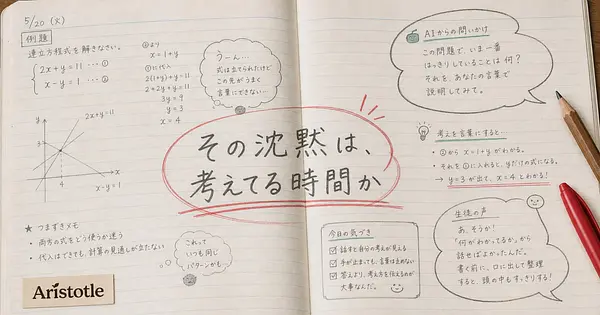 5/20 (火)
例題
連立方程式を解きなさい。
2x+y=11 … ①
x−y=1 … ②
②より
x=1+y
①に代入
2(1+y)+y=11
2+2y+y=11
3y=9
y=3
x=4
うーん…
式は立てられたけど
この先がうまく
言葉にできない…
y
2x+y=11
3
4
x
x−y=1
★ つまずきメモ
・両方の式をどう使うか迷う
・代入はできても、計算の見通しが立たない
これって
いつも同じ
パターンかも
Aristotle
その沈黙は、
考えてる時間か
AIからの問いかけ
この問題で、いま一番
はっきりしていることは何?
それを、あなたの言葉で
説明してみて。
考えを言葉にすると…
・②から x=1+y がわかる。
・それを①に入れると、yだけの式になる。
→ y=3 が出て、x=4 とわかる!
今日の気づき
話すと自分の考えが見える
手が止まっても、言葉は止めない
答えより、考え方を伝えるのが
大事なんだ。
生徒の声
あ、そうか!
「何がわかってるか」から
話せばよかったんだ。
書く前に、口に出して整理
すると、頭の中もすっきりする!